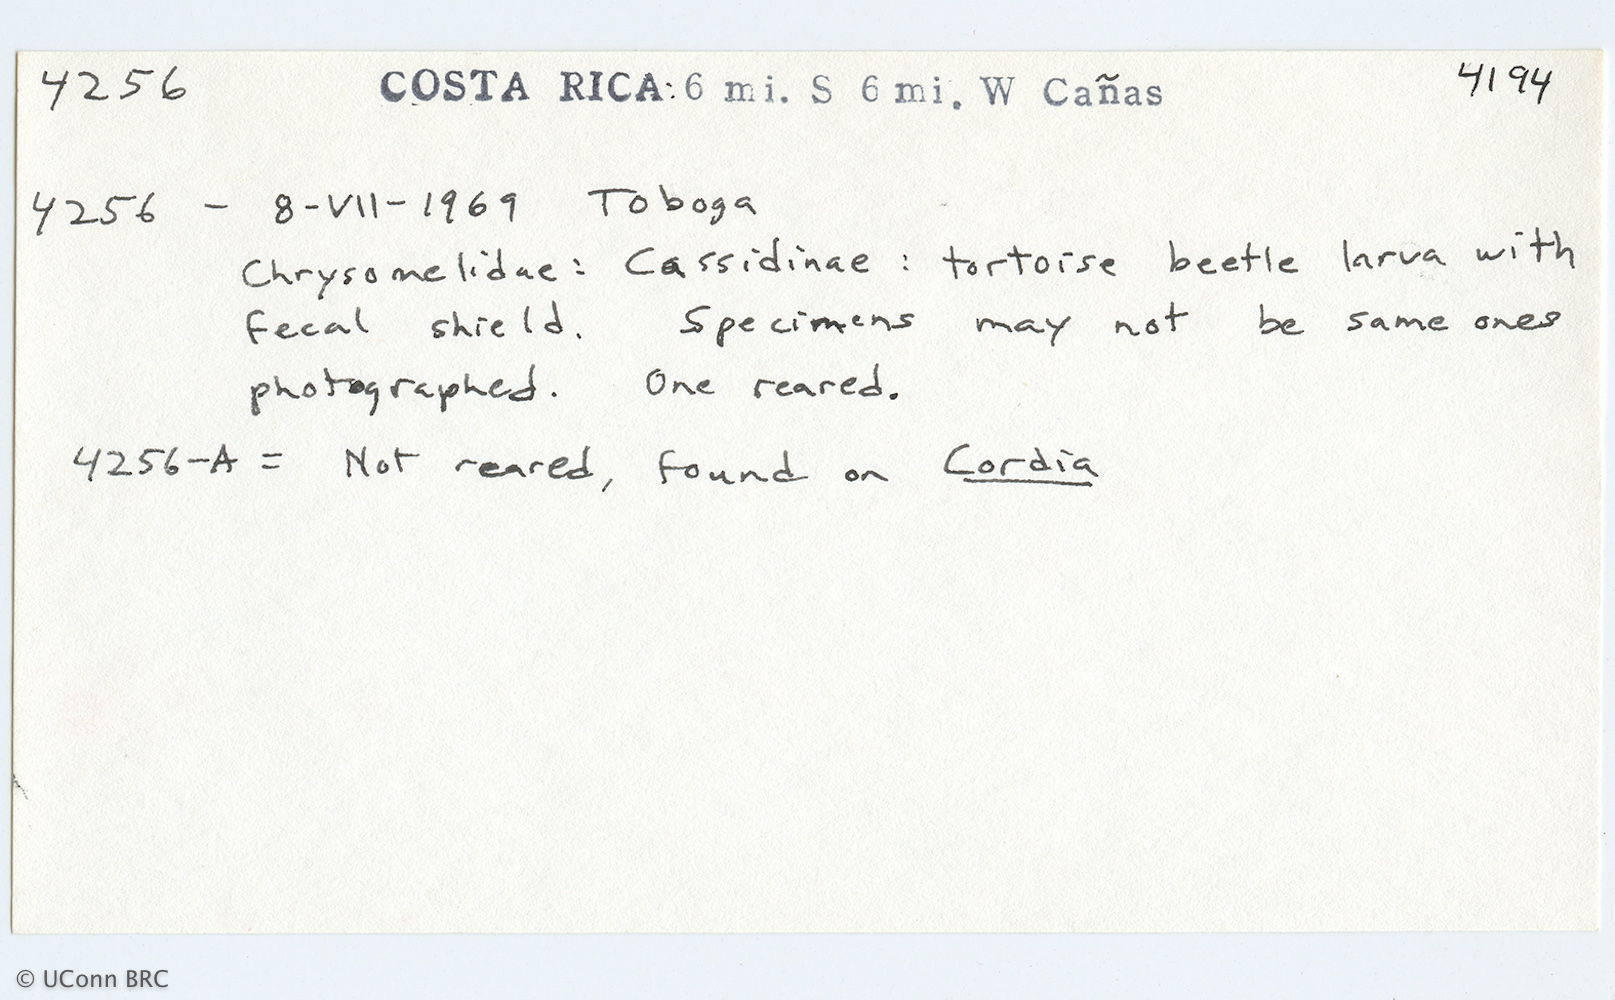 4256 COSTA RICA: 6 mi. S 6 mi. W Cañas 4194
4256 - 8-VII-1969 Toboga
Chrysomelidae: Cassidinae: tortoise beetle larva with
fecal shield. Specimens may not be same ones
photographed. One reared.
4256-A = Not reared, found on Cordia
© UConn BRC